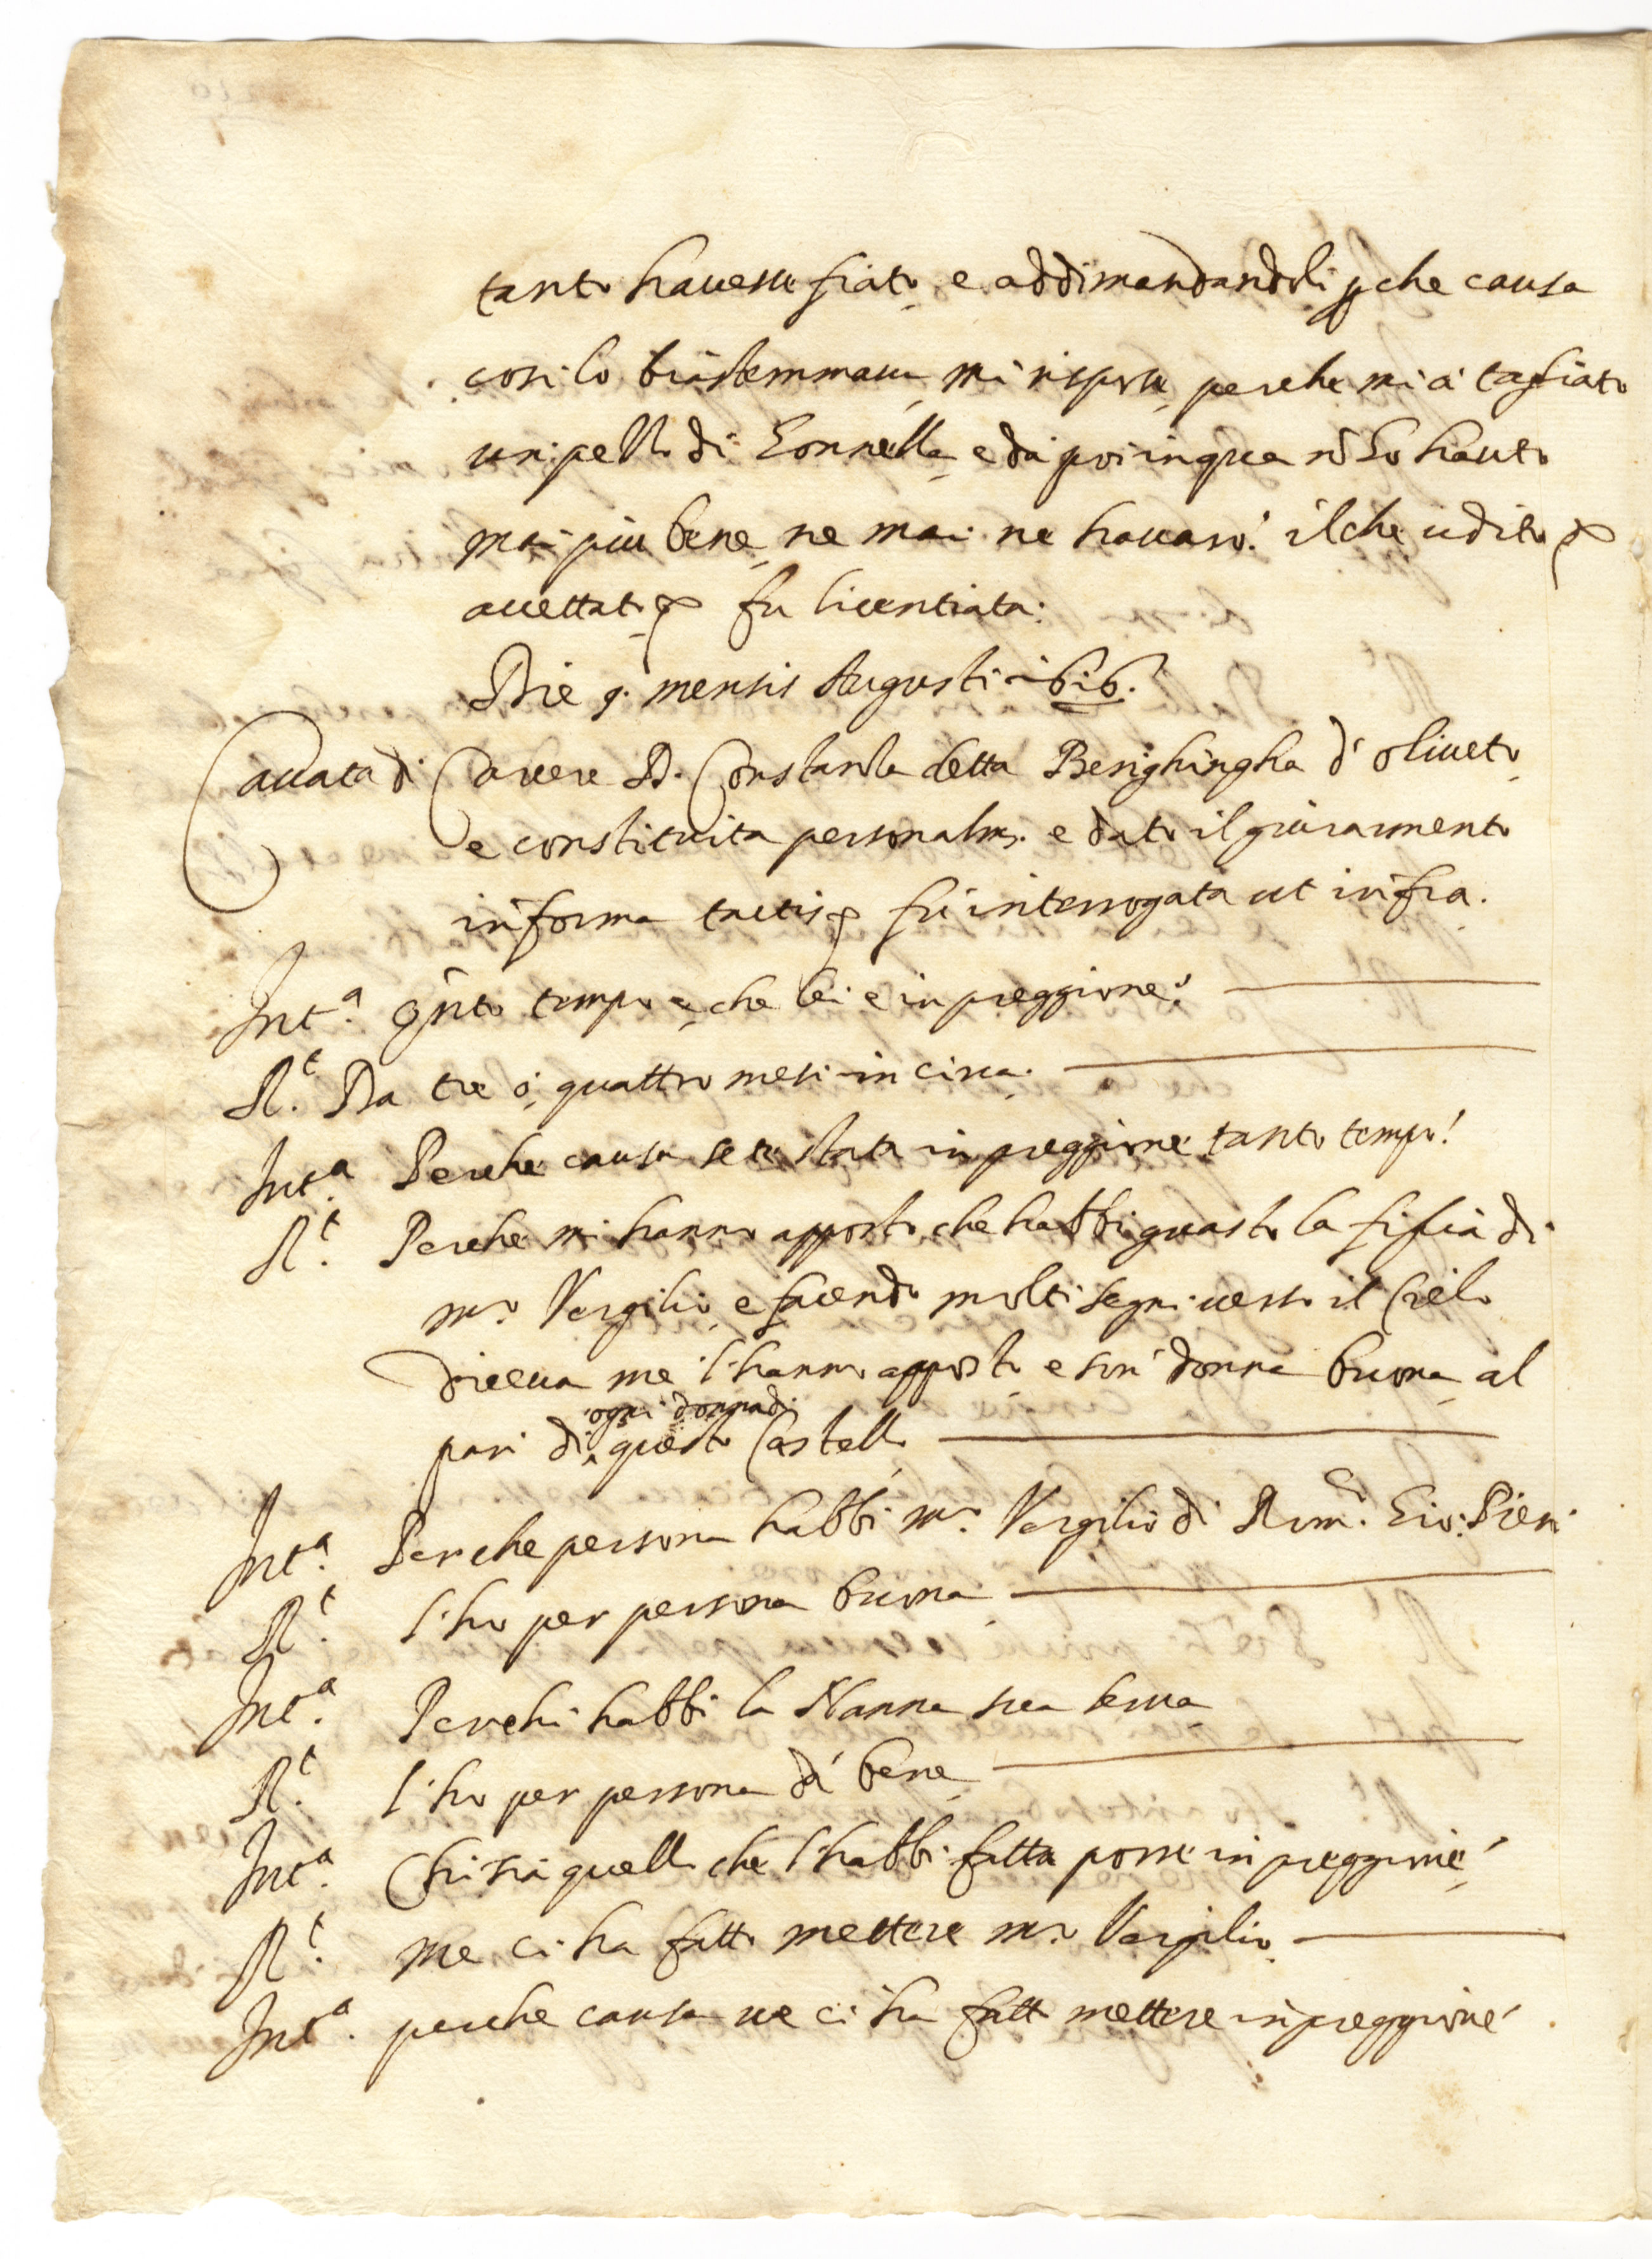 tanto havesse fiato, e addimandandoli p che causa
cosi lo biastemmava, mi rispose, perche mi à tagliato
un pello di Gonnella, e da poi in qua nõ Ho hauto
mai piu bene, ne mai ne havarò. il che udito &
accettato & fu licentiata.
Die 9. mensis Augusti 1616.
Cavata di Carcere D. Constanza detta Berighingha d' oliveto,
e constituita personalm. e dato il giuramento
in forma tactis & fù interrogata ut infra.
Int.a Q̃nto tempo e, che lei e in preggione?
R.t Da tre ò, quattro mesi in circa.
Int.a Perche causa sete stata in preggione tanto tempo?
R.t Perche mi hanno apposto che habbi guasto la figlia di
m.o Vergilio, e facendo molti segni verso il Cielo
diceva me l'hanno apposto e son' donna buona, al
pari di ogni donna di questo Castello
Int.a Per che persona habbi m.o Vergilio di Rom.o Gio: Pieri
R.t l'ho per persona buona
Int.a Per chi habbi la Nanna sua serva
R.t l'ho per persona da' bene
Int.a Chi sia quello che l'habbi fatta porre in preggione
R.t me ci ha fatto mettere m.o Vergilio
Int.a perche causa ve ci ha fatto mettere in preggione